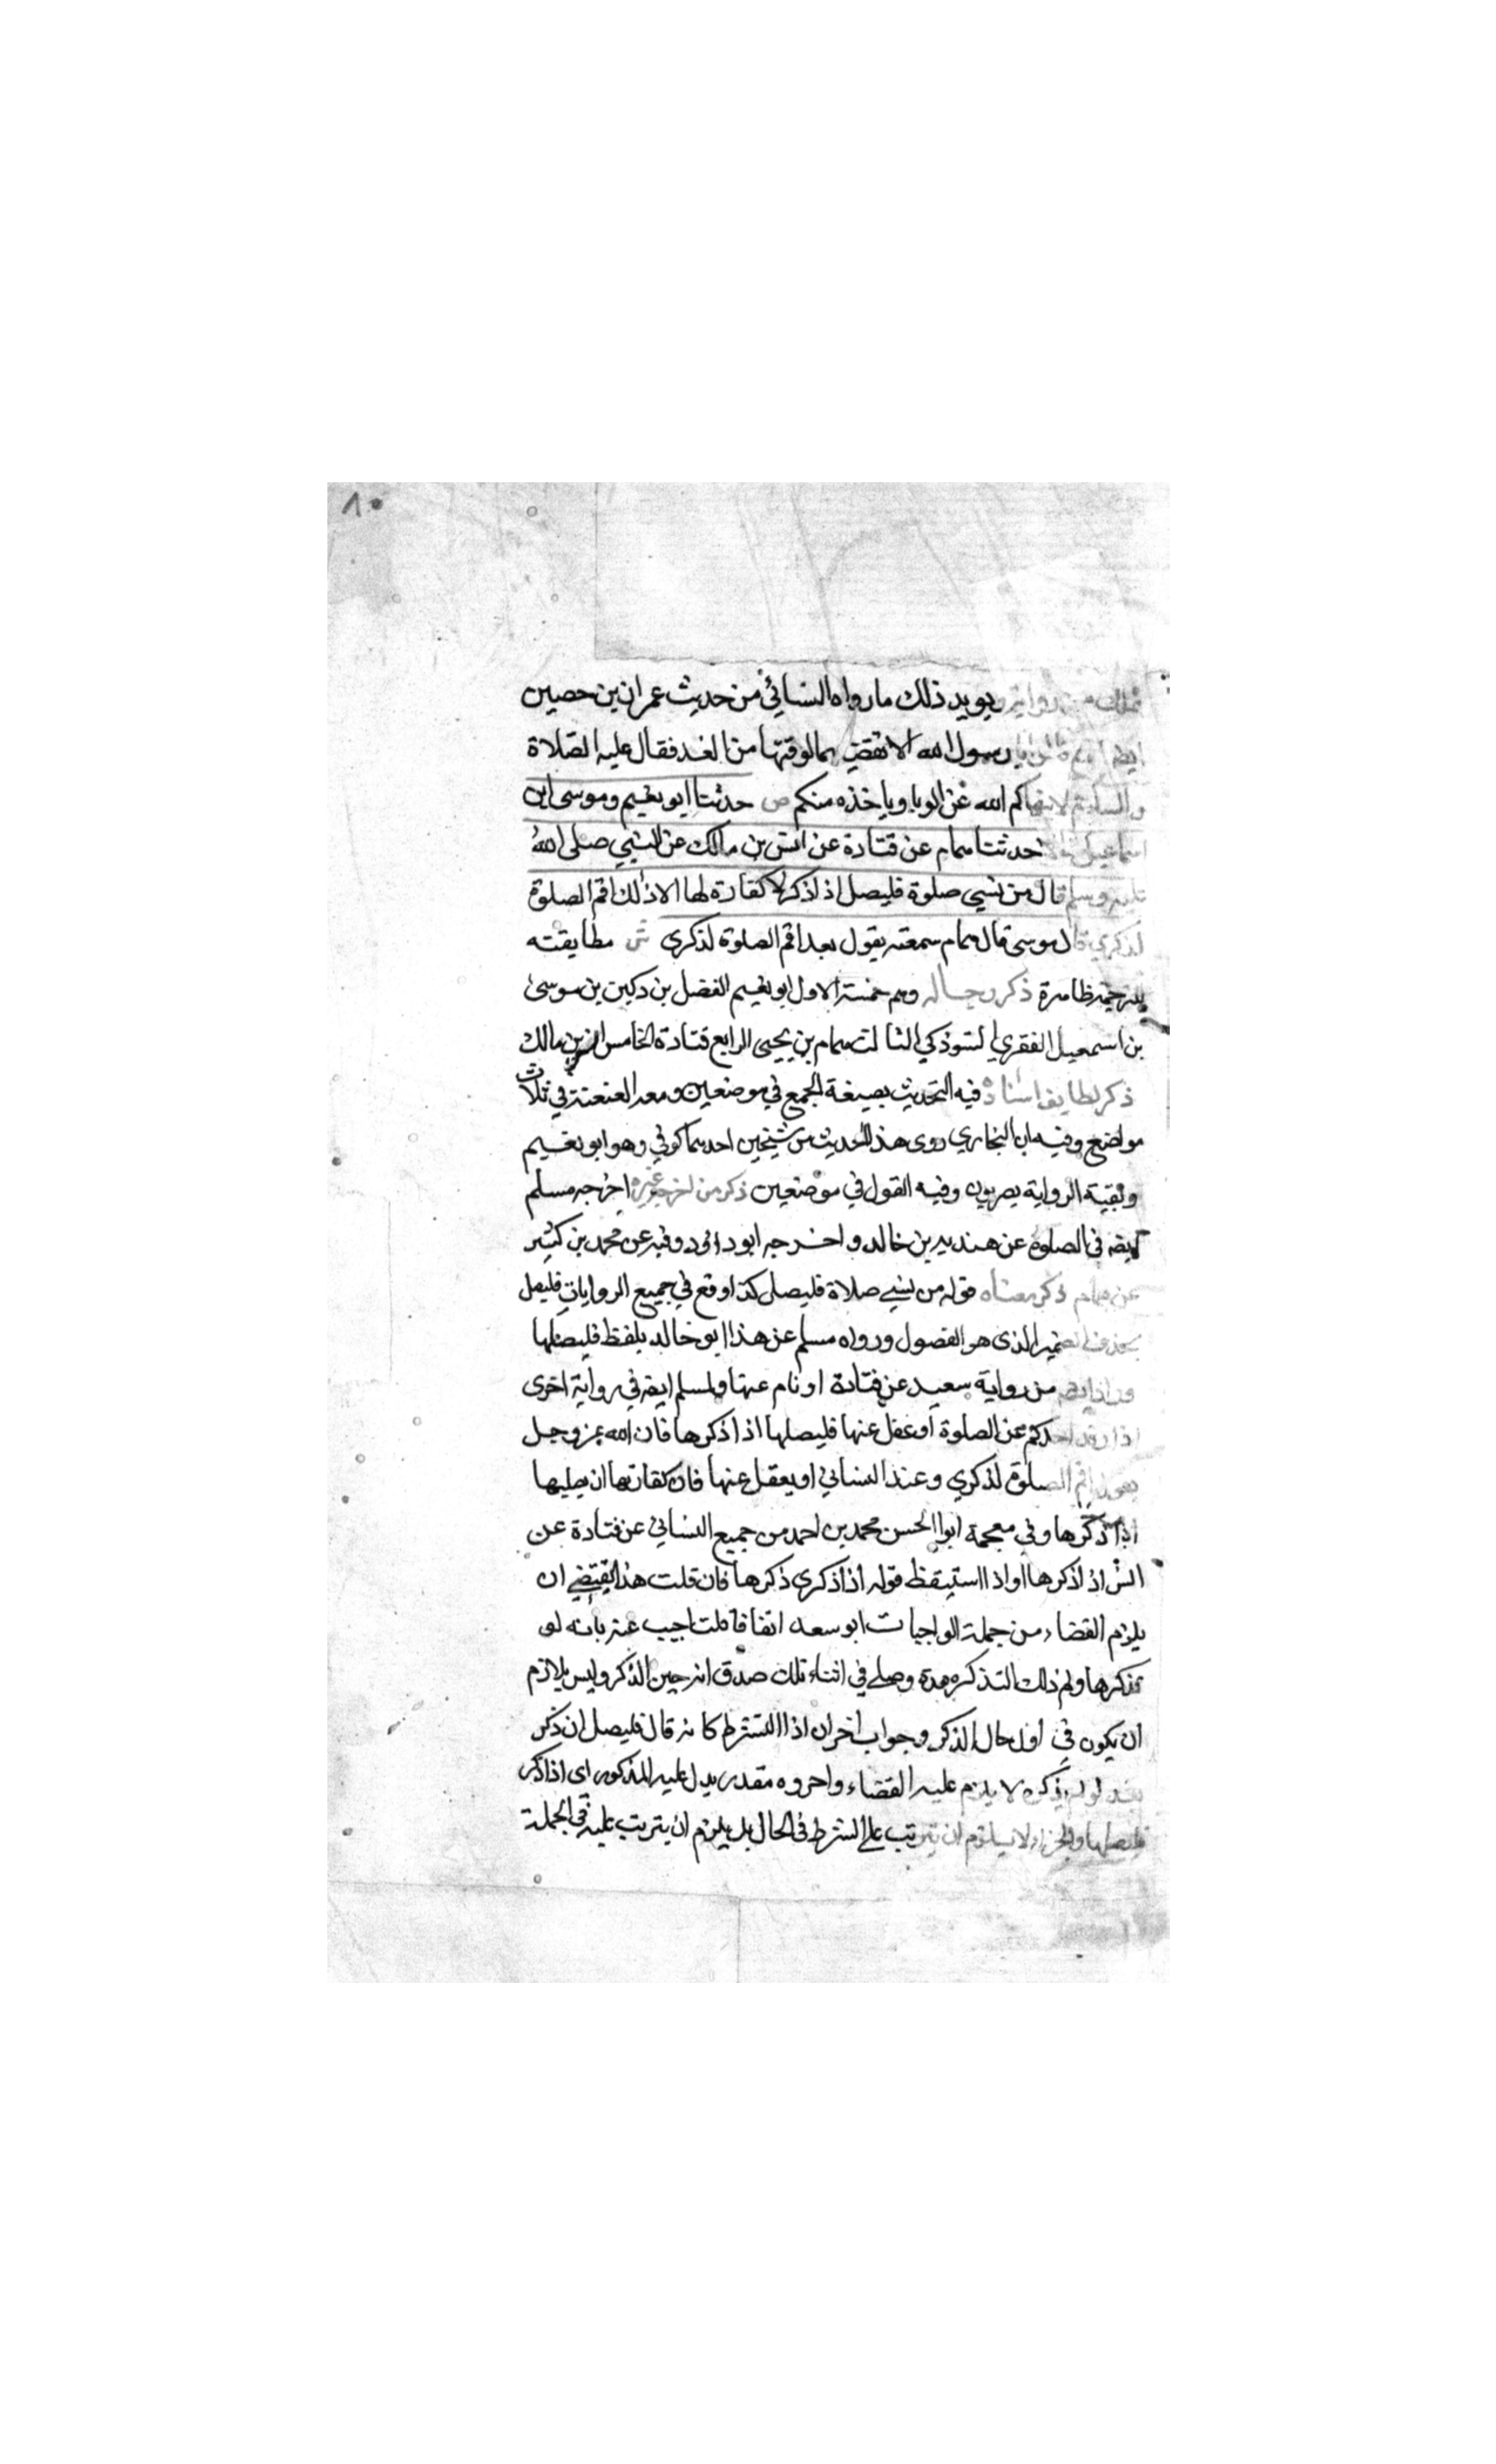 ٨٠
ويويد ذلك ما رواه النسائي من حديث عمران بن حصين
رسول الله الا نقضيها لوقتها من الغد فقال عليه الصلاة
والسلام لا ينهاكم الله عن الربا وياخذه منكم ص حدثنا ابو نعيم وموسى ابن
اسماعيل قالا حدثنا همام عن قتادة عن انس بن مالك عن النبي صلى الله
عليه وسلم قال من نسي صلوة فليصل اذا ذكر لا كفارة لها الا ذلك اقم الصلوة
لذكري قال موسى قال همام سمعته يقول بعد اقم الصلوة لذكرى ش مطابقته
للترجمة ظاهرة ذكر رجاله وهم خمسة الاول ابو نعيم الفضل بن دكين بن موسى
بن اسمعيل الفقري التبوذكي الثالث همام بن يحيى الرابع قتادة الخامس انس بن مالك
ذكر لطايف اسناده فيه التحديث بصيغة الجمع في موضعين ومعه العنعنة في ثلاث
مواضع وفيه ان البخاري روى هذا الحديث من شيخين احدهما كوفي وهو ابو نعيم
وبقية الرواية بصريون وفيه القول في موضعين ذكر من اخرجه غيره اخرجه مسلم
ايضه في الصلوة عن هديد بن خالد واخرجه ابو داود وفيه عن محمد بن كثير
عن همام ذكر معناه قوله من نسي صلاة فليصل كذا وقع في جميع الروايات فليصل
بحذف الضمير الذى هو الفصول ورواه مسلم عن هذا ابو خالد بلفظ فليصلها
من رواية سعيد عن قتادة او نام عنها ولمسلم ايضه في رواية اخرى
اذا رقد احدكم عن الصلوة او غفل عنها فليصلها اذا ذكرها فان الله عز وجل
يقول اقم الصلوة لذكري وعند النسائي او يغفل عنها فان كفارتها ان يصليها
اذا ذكرها وفي معجمة ابو الحسن محمد بن احمد من جميع النسائي عن قتادة عن
انس اذا ذكرها او اذا استيقظ قوله اذا ذكرى ذكرها فان قلت هذا يقتضي ان
يلزم القضاء من جملة الواجبات ابو سعد اتفاقا قلت اجيب عنه بانه لو
تذكرها ولم ذلك التذكره مدة وصلى في اثناء تلك صدق انه حين الذكر وليس بلازم
ان يكون في اول حال الذكر وجواب اخر ان اذا الشرط كانه قال فليصل ان ذكر
يعنى لو لم يذكره لا يلزم عليه القضاء واحروه مقدر يدل عليه المذكور اى اذا ذكر
فليصلها والجزاء لا يلزم ان يترتب على الشرط في الحال بل يلزم ان يترتب عليه في الجملة